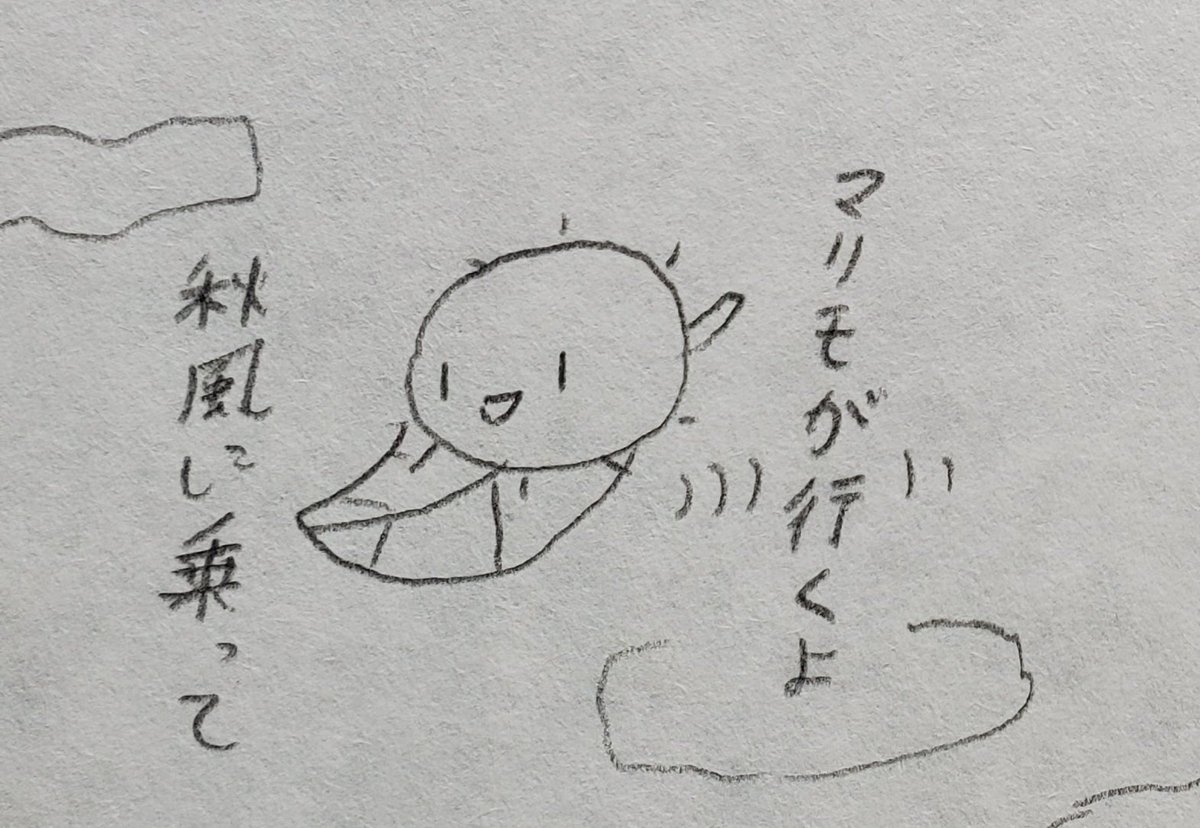 マリモが行くよ
秋風に乗って